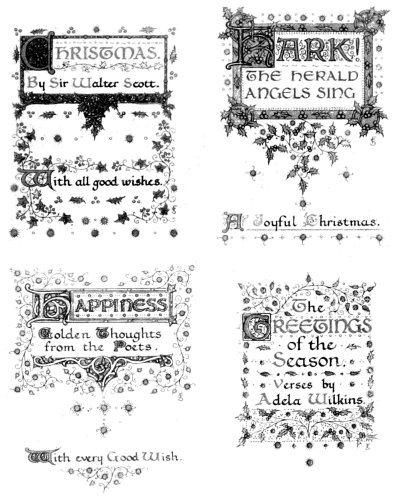 CHRISTMAS.
By Sir Walter Scott.
With all good wishes.
HARK!
THE HERALD
ANGELS SING
A Joyful Christmas.
HAPPINESS
Golden Thoughts
from the Poets.
With every Good Wish.
The
GREETINGS
of the
Season.
Verses by
Adela Wilkins.